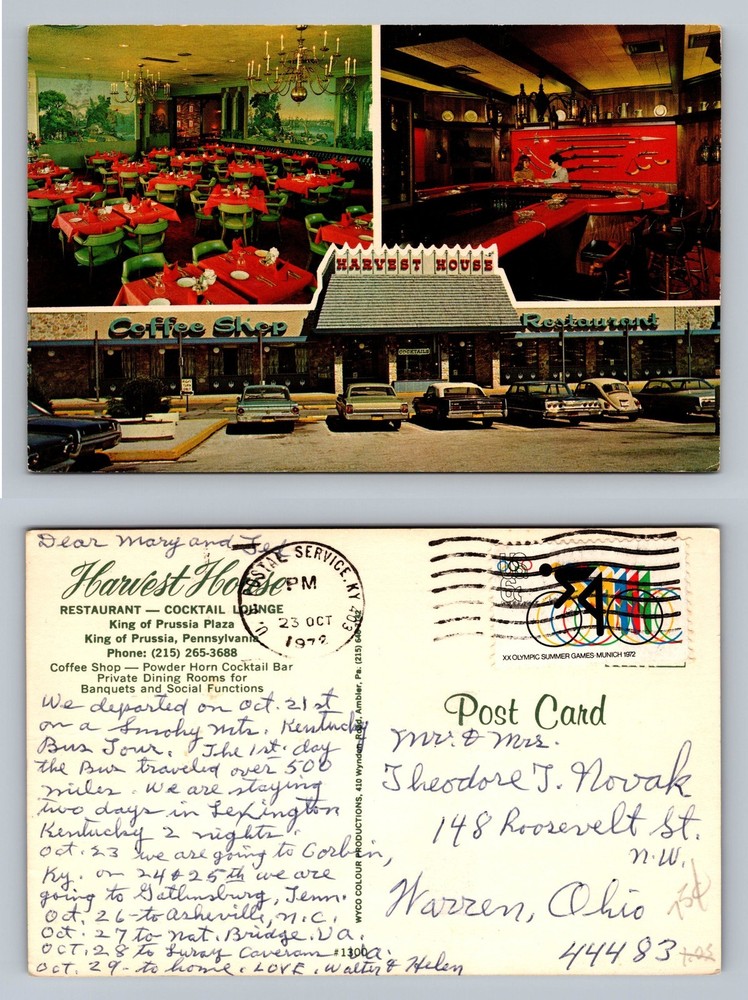 HARVEST HOUSE
Coffee Shop
Restaurant
COCKTAILS
Dear Mary and Ted
Harvest House
RESTAURANT — COCKTAIL LOUNGE
King of Prussia Plaza
King of Prussia, Pennsylvania
Phone: (215) 265-3688
Coffee Shop — Powder Horn Cocktail Bar
Private Dining Rooms for
Banquets and Social Functions
We departed on Oct. 21st
on a Smoky Mts. Kentucky
Bus Tour. The 1st. day
the Bus traveled over 500
miles. We are staying
two days in Lexington
Kentucky 2 nights.
Oct. 23 we are going to Corbin,
Ky. on 24 & 25th we are
going to Gatlinsburg, Tenn.
Oct. 26 - to Asheville, N.C.
Oct. 27 to Nat. Bridge. Va.
Oct. 28 to Luray Caverns Va.
Oct. 29 - to home. LOVE. Walter & Helen
#1300
WYCO COLOUR PRODUCTIONS, 410 Wyndon Road, Ambler, Pa. (215)
U. S. POSTAL SERVICE, KY 403
PM
23 OCT
1972
XX OLYMPIC SUMMER GAMES · MUNICH 1972
Post Card
Mr. & Mrs.
Theodore T. Novak
148 Roosevelt St.
N.W.
Warren, Ohio
44483